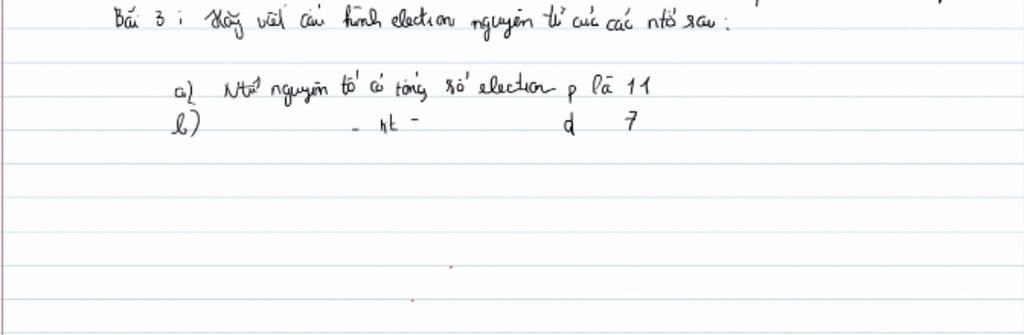 Bài 3 : Hãy viết cấu hình election nguyên tử của các ntố sau :
a) Ntử nguyên tố có tổng số election p là 11
b) - nt - d 7